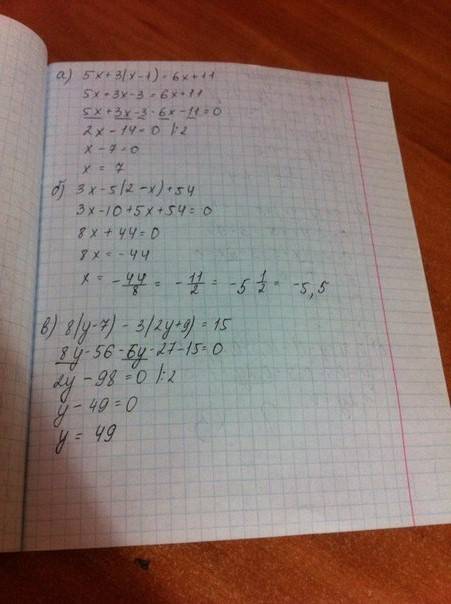 а) 5x+3(x-1)=6x+11
5x+3x-3=6x+11
5x+3x-3-6x-11=0
2x-14=0 |:2
x-7=0
x = 7
б) 3x-5(2-x)+54
3x-10+5x+54=0
8x+44=0
8x=-44
x = -44/8 = -11/2 = -5 1/2 = -5,5
в) 8(y-7)-3(2y+9)=15
8y-56-6y-27-15=0
2y-98=0 |:2
y-49=0
y = 49